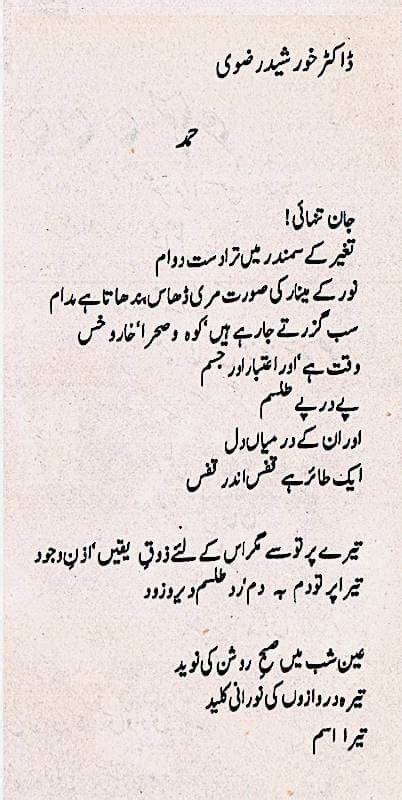 ڈاکٹر خورشید رضوی
حمد
جان تنہائی!
تغیر کے سمندر میں ترا دست دوام
نور کے مینار کی صورت مری ڈھاس بندھاتا ہے مدام
سب گزرتے جا رہے ہیں‘ کوہ و صحرا‘ خار و خس
وقت ہے‘ اور اعتبار اور جسم
پے در پے طلسم
اور ان کے درمیاں دل
ایک طائر ہے قفس اندر قفس
تیرے پرتو سے مگر اس کے لئے ذوقِ یقیں‘ اذنِ وجود
تیرا پرتو دم بہ دم‘ رد طلسم دیر و زود
عین شب میں صبحِ روشن کی نوید
تیرہ دروازوں کی نورانی کلید
تیرا اسم